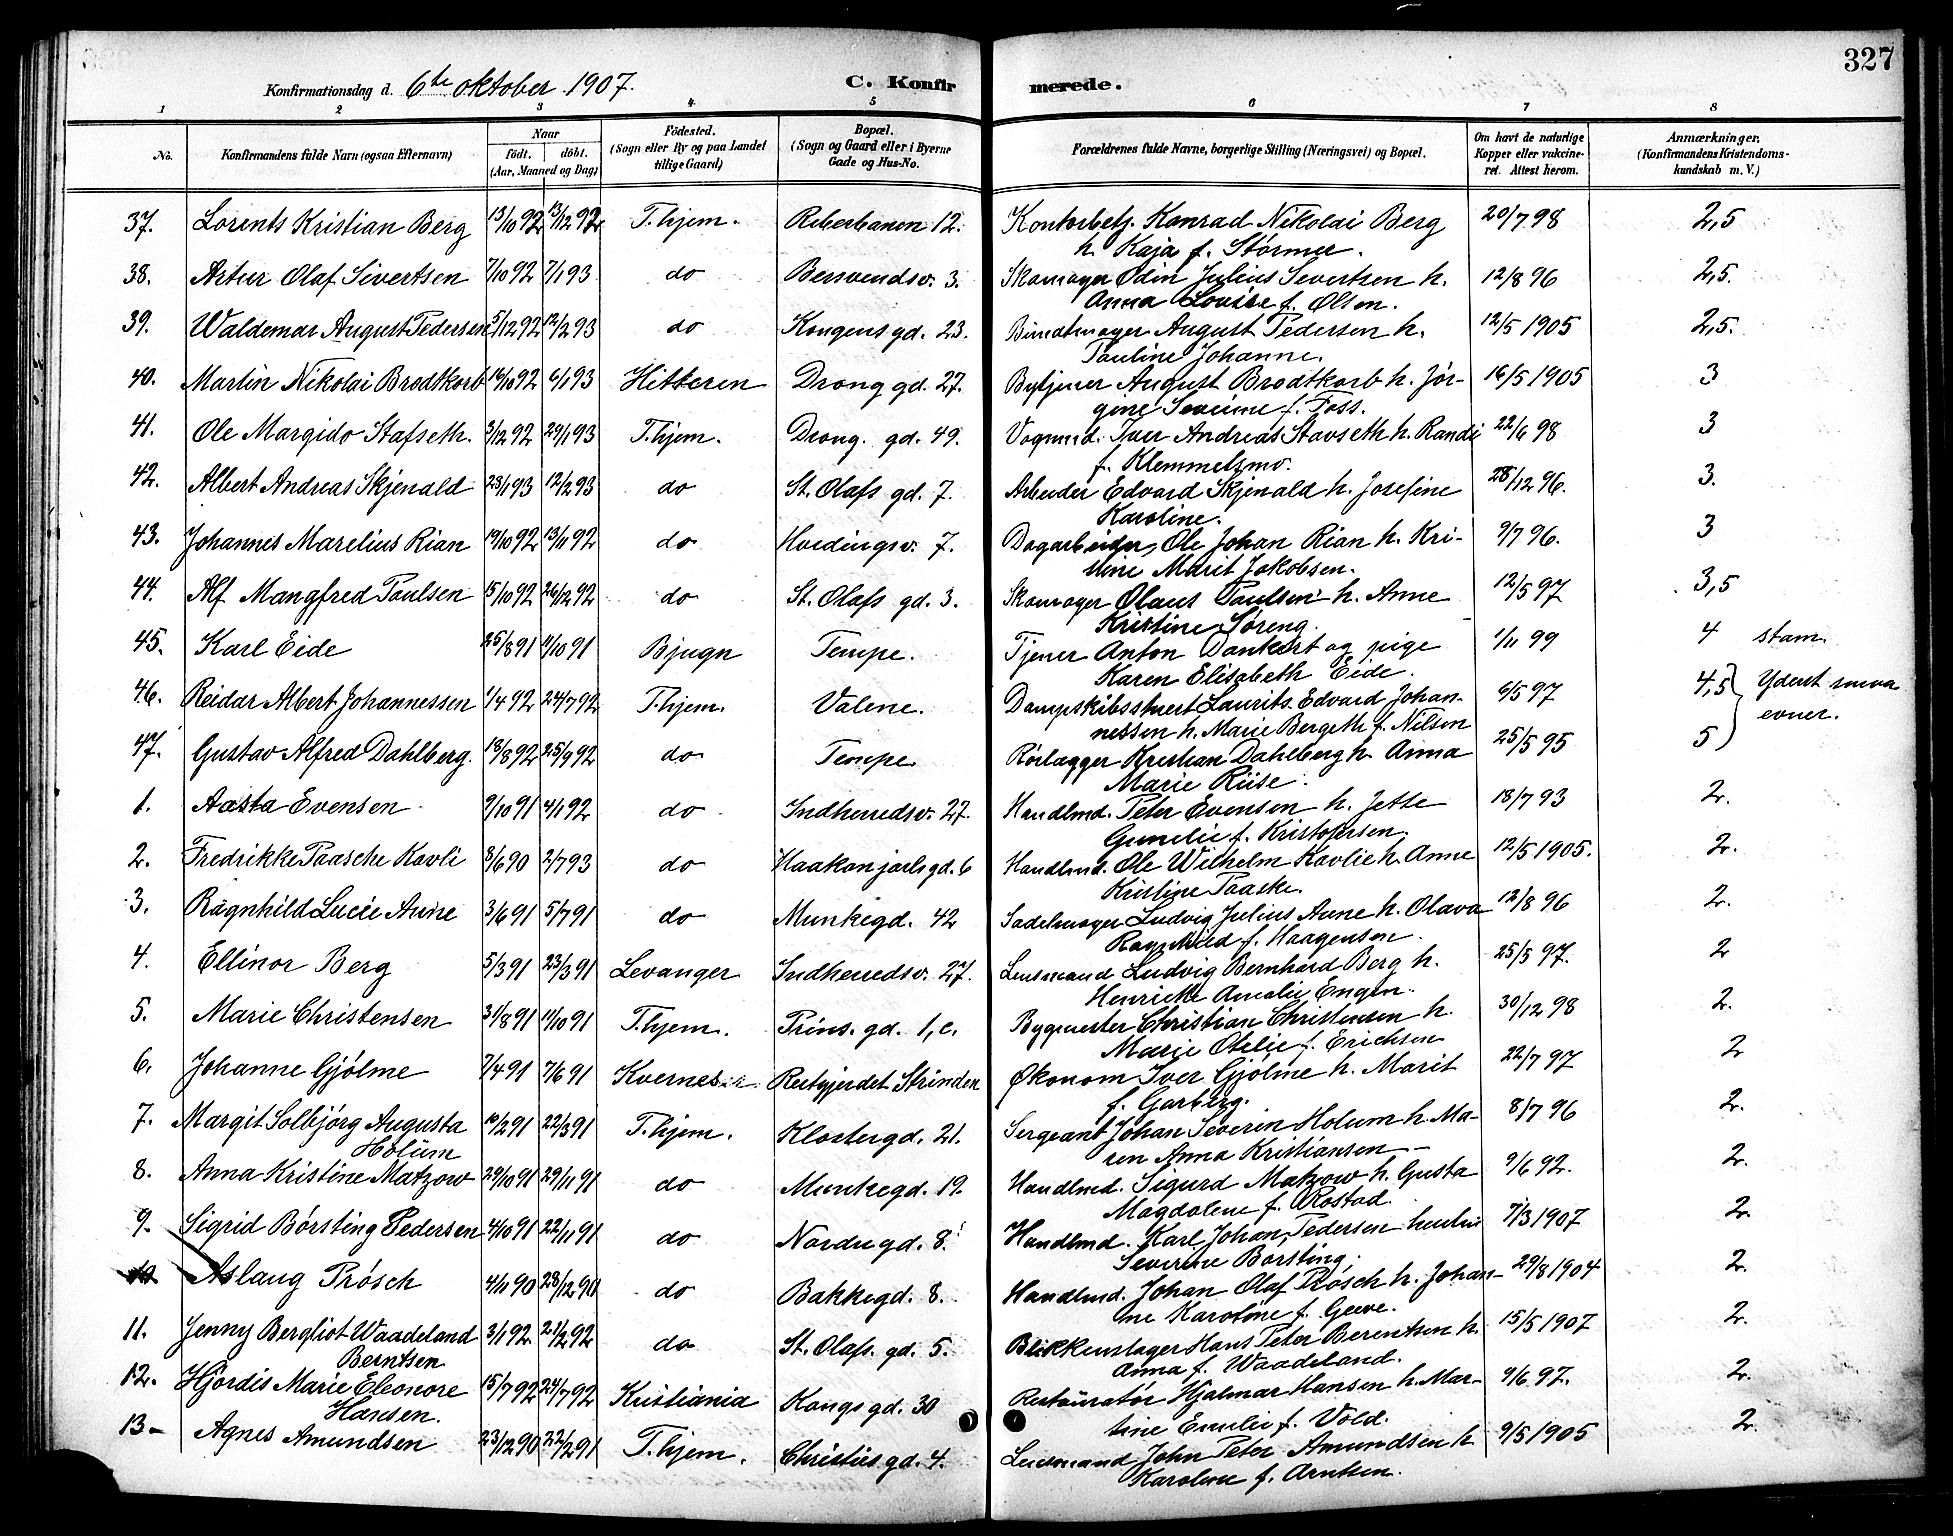 327
Konfirmationsdag d. 6te oktober 1907. C. Konfirmerede.
1 2 3 4 5 6 7 8
No. Konfirmandens fulde Navn (ogsaa Efternavn) Naar født. døbt. (Aar, Maaned og Dag) Fødested. (Sogn eller By og paa Landet tillige Gaard) Bopæl. (Sogn og Gaard eller i Byerne Gade og Hus-No. Forældrenes fulde Navne, borgerlige Stilling (Næringsvei) og Bopæl. Om havt de naturlige Kopper eller vakcineret. Attest herom. Anmærkninger, (Konfirmandens Kristendomskundskab m. V.)
37. Lorents Kristian Berg 13/10 92 13/12 92 T.hjem. Reberbanen 12. Kontorbetj. Konrad Nikolai Berg 20/7 98 2,5
h. Kaja f. Størmer.
38. Artur Olaf Sivertsen 7/10 92 7/1 93 do Bersvendsv. 3. Skomager Odin Julius Sivertsen h. 12/8 96 2,5.
Anna Lovise f. Olsen.
39. Waldemar August Pedersen 5/12 92 12/2 93 do Kongens gd. 23. Bundtmager August Pedersen h. 12/5 1905 2,5.
Pauline Johanne.
40. Martin Nikolai Brodtkorb 14/10 92 6/1 93 Hitteren Drong gd. 27. Bytjener August Brodtkorb h. Jør- 16/5 1905 3
gine Severine f. Foss.
41. Ole Margido Stafseth. 3/12 92 29/1 93 T.hjem. Drong. gd. 49. Vognmd. Iver Andreas Stavseth h. Randi 22/6 98 3
f. Klemmetsmo.
42. Albert Andreas Skjenald 23/1 93 12/2 93 do St. Olafs gd. 7. Arbeider Edvard Skjenald h. Josefine 28/12 96. 3.
Karoline.
43. Johannes Marelius Rian 19/10 92 13/11 92 do Hvedingsv. 7. Dagarbeider, Ole Johan Rian h. Kri- 9/7 96. 3
stine Marit Jakobsen.
44. Alf Mangfred Paulsen 15/10 92 26/12 92 do St. Olafs gd. 3. Skomager Olaus Paulsen h. Anne 12/5 97 3,5
Kristine Søreng.
45. Karl Eide 25/8 91 11/10 91 Bjugn Tempe. Tjener Anton Dankert og pige 1/11 99 4 stam.
Karen Elisabeth Eide.
46. Reidar Albert Johannessen 1/4 92 24/7 92 T.hjem. Valene. Dampskibsstuert Laurits Edvard Johan- 6/5 97 4,5 } Yderst smaa
nessen h. Marie Bergeth f. Nilsen evner.
47. Gustav Alfred Dahlberg. 18/8 92 25/9 92 do Tempe Rørlægger Kristian Dahlberg h. Anna 25/5 95 5
Marie Riise.
1. Aasta Evensen 9/10 91 4/1 92 do Indherredsv. 27. Handlmd. Peter Evensen h. Jette 18/7 93 2.
Gunelie f. Kristofersen.
2. Fredrikke Paasche Kavli 8/6 90 2/7 93 do Haakon jarls gd. 6 Handlmd. Ole Wilhelm Kavlie h. Anne 12/5 1905. 2.
Kristine Paaske.
3. Ragnhild Lucie Aune 3/6 91 5/7 91 do Munkegd. 42 Sadelmager Ludvig Julius Aune h. Olava 12/8 96 2.
Ragnhild f. Haagensen.
4. Ellinor Berg 5/3 91 23/3 91 Levanger Indherredsv. 27. Lensmand Ludvig Bernhard Berg h. 25/5 97. 2
Henrikke Amalie Engen.
5. Marie Christensen 31/8 91 11/10 91 T.hjem. Prins. gd. 1, c. Bygmester Christian Christensen h. 30/12 98 2.
Marie Otelie f. Erichsen
6. Johanne Gjølme 7/4 91 7/6 91 Kvernes Rectgjerdet Strinden Økonom Iver Gjølme h. Marit 22/7 97 2
f. Garberg.
7. Margit Solbjørg Augusta 14/2 91 22/3 91 T.hjem. Klostergd. 21. Sergeant Johan Severin Holum h. Ma- 8/7 96 2.
Holum ren Anna Kristiansen
8. Anna Kristine Matzow 29/10 91 29/11 91 do Munkegd. 19. Handlmd. Sigurd Matzow h. Gusta 9/6 92. 2.
Magdalene f. Rostad.
9. Sigrid Børsting Pedersen 4/10 91 22/11 91 do Nordregd. 8. Handlmd. Karl Johan Pedersen 7/3 1907 2.
Severine Borsting.
10 Aslaug Prøsch 4/11 90 28/12 90 do Bakkegd. 8. Handlmd. Johan Olaf Prøsch h. Johan- 29/8 1904 2.
ne Karoline f. Greve.
11. Jenny Bergliot Waadeland 3/1 92 21/2 92 do St. Olafs. gd. 5. Blikkenslager Hans Peter Berentsen h. 15/5 1907 2.
Berntsen Anna f. Waadeland.
12. Hjørdis Marie Eleonore 15/7 92 24/7 92 Kristiania Kongs gd. 30 Restauratør Hjalmar Hansen h. Mar- 9/6 97. 2.
Hansen. tine Emilie f. Vold.
13- Agnes Amundsen 23/12 90 22/2 91 T.hjem. Christies gd. 4. Lensmand John Peter Amundsen h 9/5 1905 2.
Karoline f. Arntsen.